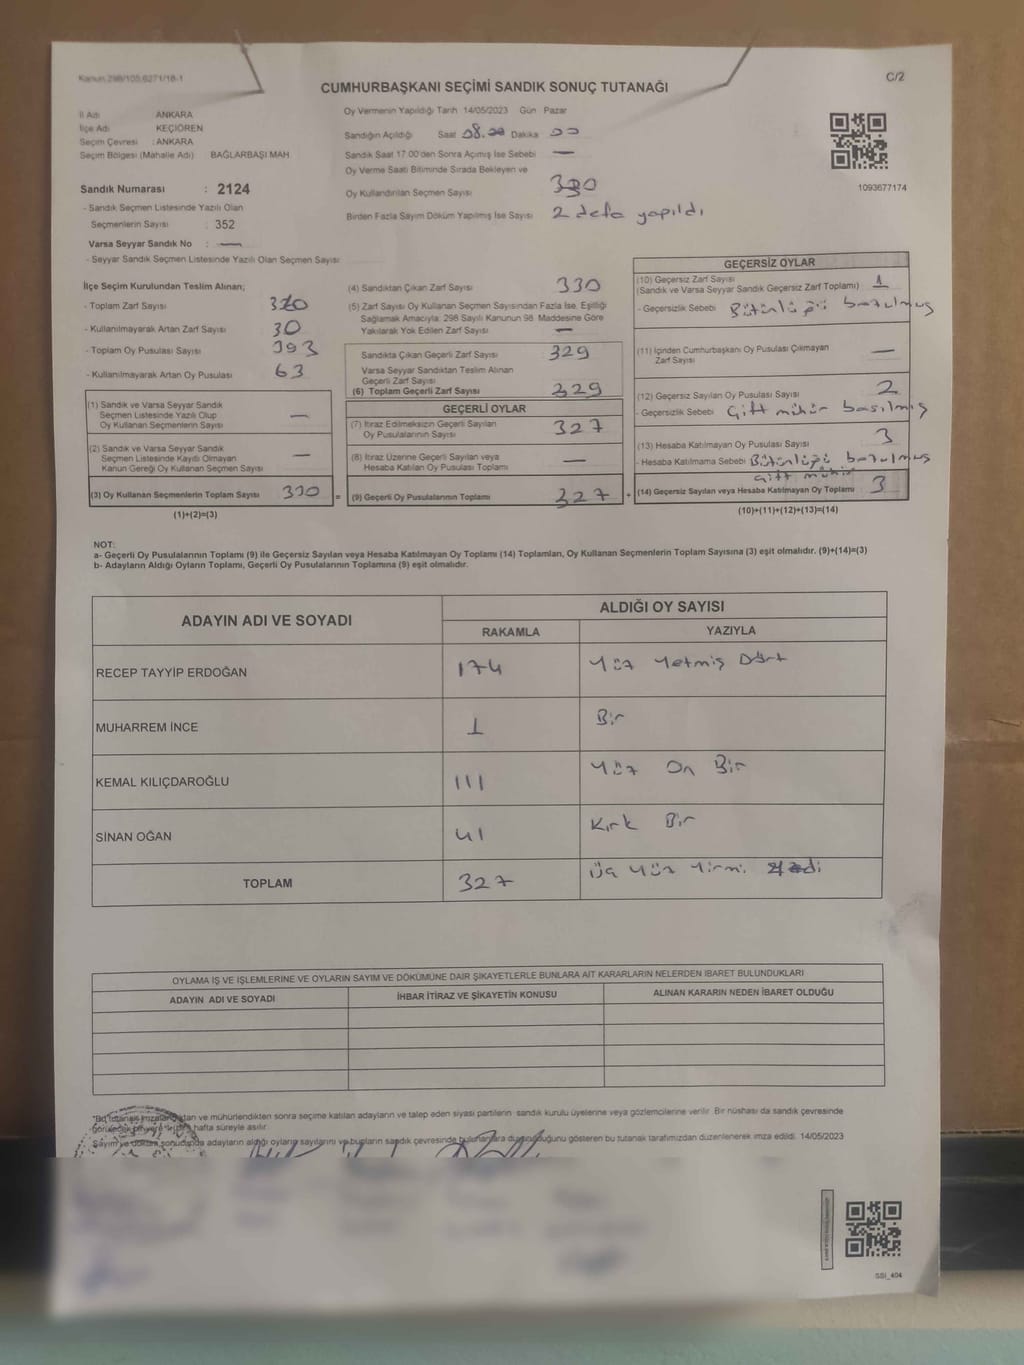 Kanun 298/105,6271/18-1
C/2
CUMHURBAŞKANI SEÇİMİ SANDIK SONUÇ TUTANAĞI
İl Adı ANKARA
İlçe Adı KEÇİÖREN
Seçim Çevresi : ANKARA
Seçim Bölgesi (Mahalle Adı) BAĞLARBAŞI MAH
Sandık Numarası : 2124
- Sandık Seçmen Listesinde Yazılı Olan
Seçmenlerin Sayısı : 352
Varsa Seyyar Sandık No : —
- Seyyar Sandık Seçmen Listesinde Yazılı Olan Seçmen Sayısı
Oy Vermenin Yapıldığı Tarih 14/05/2023 Gün Pazar
Sandığın Açıldığı Saat 08.00 Dakika 00
Sandık Saat 17:00'den Sonra Açımış İse Sebebi —
Oy Verme Saati Bitiminde Sırada Bekleyen ve
Oy Kullandırılan Seçmen Sayısı 330
Birden Fazla Sayım Döküm Yapılmış İse Sayısı 2 defa yapıldı
1093677174
İlçe Seçim Kurulundan Teslim Alınan;
- Toplam Zarf Sayısı
- Kullanılmayarak Artan Zarf Sayısı 30
- Toplam Oy Pusulası Sayısı 393
- Kullanılmayarak Artan Oy Pusulası 63
(1) Sandık ve Varsa Seyyar Sandık
Seçmen Listesinde Yazılı Olup
Oy Kullanan Seçmenlerin Sayısı —
(2) Sandık ve Varsa Seyyar Sandık
Seçmen Listesinde Kayıtlı Olmayan
Kanun Gereği Oy Kullanan Seçmen Sayısı —
(3) Oy Kullanan Seçmenlerin Toplam Sayısı 330 =
(1)+(2)=(3)
(4) Sandıktan Çıkan Zarf Sayısı 330
(5) Zarf Sayısı Oy Kullanan Seçmen Sayısından Fazla İse, Eşitliği
Sağlamak Amacıyla; 298 Sayılı Kanunun 98. Maddesine Göre
Yakılarak Yok Edilen Zarf Sayısı —
Sandıkta Çıkan Geçerli Zarf Sayısı 329
Varsa Seyyar Sandıktan Teslim Alınan
Geçerli Zarf Sayısı
(6) Toplam Geçerli Zarf Sayısı 329
GEÇERLİ OYLAR
(7) İtiraz Edilmeksizin Geçerli Sayılan
Oy Pusulalarının Sayısı 327
(8) İtiraz Üzerine Geçerli Sayılan veya
Hesaba Katılan Oy Pusulası Toplamı —
(9) Geçerli Oy Pusulalarının Toplamı 327 +
GEÇERSİZ OYLAR
(10) Geçersiz Zarf Sayısı 1
(Sandık ve Varsa Seyyar Sandık Geçersiz Zarf Toplamı)
- Geçersizlik Sebebi Bütünlüğü bozulmuş
(11) İçinden Cumhurbaşkanı Oy Pusulası Çıkmayan
Zarf Sayısı —
(12) Geçersiz Sayılan Oy Pusulası Sayısı 2
- Geçersizlik Sebebi Çift mühür basılmış
(13) Hesaba Katılmayan Oy Pusulası Sayısı 3
- Hesaba Katılmama Sebebi Bütünlüğü bozulmuş
Çift mühür
(14) Geçersiz Sayılan veya Hesaba Katılmayan Oy Toplamı 3
(10)+(11)+(12)+(13)=(14)
NOT:
a- Geçerli Oy Pusulalarının Toplamı (9) ile Geçersiz Sayılan veya Hesaba Katılmayan Oy Toplamı (14) Toplamları, Oy Kullanan Seçmenlerin Toplam Sayısına (3) eşit olmalıdır. (9)+(14)=(3)
b- Adayların Aldığı Oyların Toplamı, Geçerli Oy Pusulalarının Toplamına (9) eşit olmalıdır.
ADAYIN ADI VE SOYADI
ALDIĞI OY SAYISI
RAKAMLA YAZIYLA
RECEP TAYYİP ERDOĞAN 174 Yüz Yetmiş Dört
MUHARREM İNCE 1 Bir
KEMAL KILIÇDAROĞLU 111 Yüz On Bir
SİNAN OĞAN 41 Kırk Bir
TOPLAM 327 Üç Yüz Yirmi Yedi
OYLAMA İŞ VE İŞLEMLERİNE VE OYLARIN SAYIM VE DÖKÜMÜNE DAİR ŞİKAYETLERLE BUNLARA AİT KARARLARIN NELERDEN İBARET BULUNDUKLARI
ADAYIN ADI VE SOYADI İHBAR İTİRAZ VE ŞİKAYETİN KONUSU ALINAN KARARIN NEDEN İBARET OLDUĞU
*Bu tutanak imzalandıktan ve mühürlendikten sonra seçime katılan adayların ve talep eden siyasi partilerin sandık kurulu üyelerine veya gözlemcilerine verilir. Bir nüshası da sandık çevresinde
hafta süreyle asılır.
Sayım ve döküm sonucunda adayların aldığı oyların sayılarını ve bunların sandık çevresinde bulunanlara duyurulduğunu gösteren bu tutanak tarafımızdan düzenlenerek imza edildi. 14/05/2023
SSİ_404